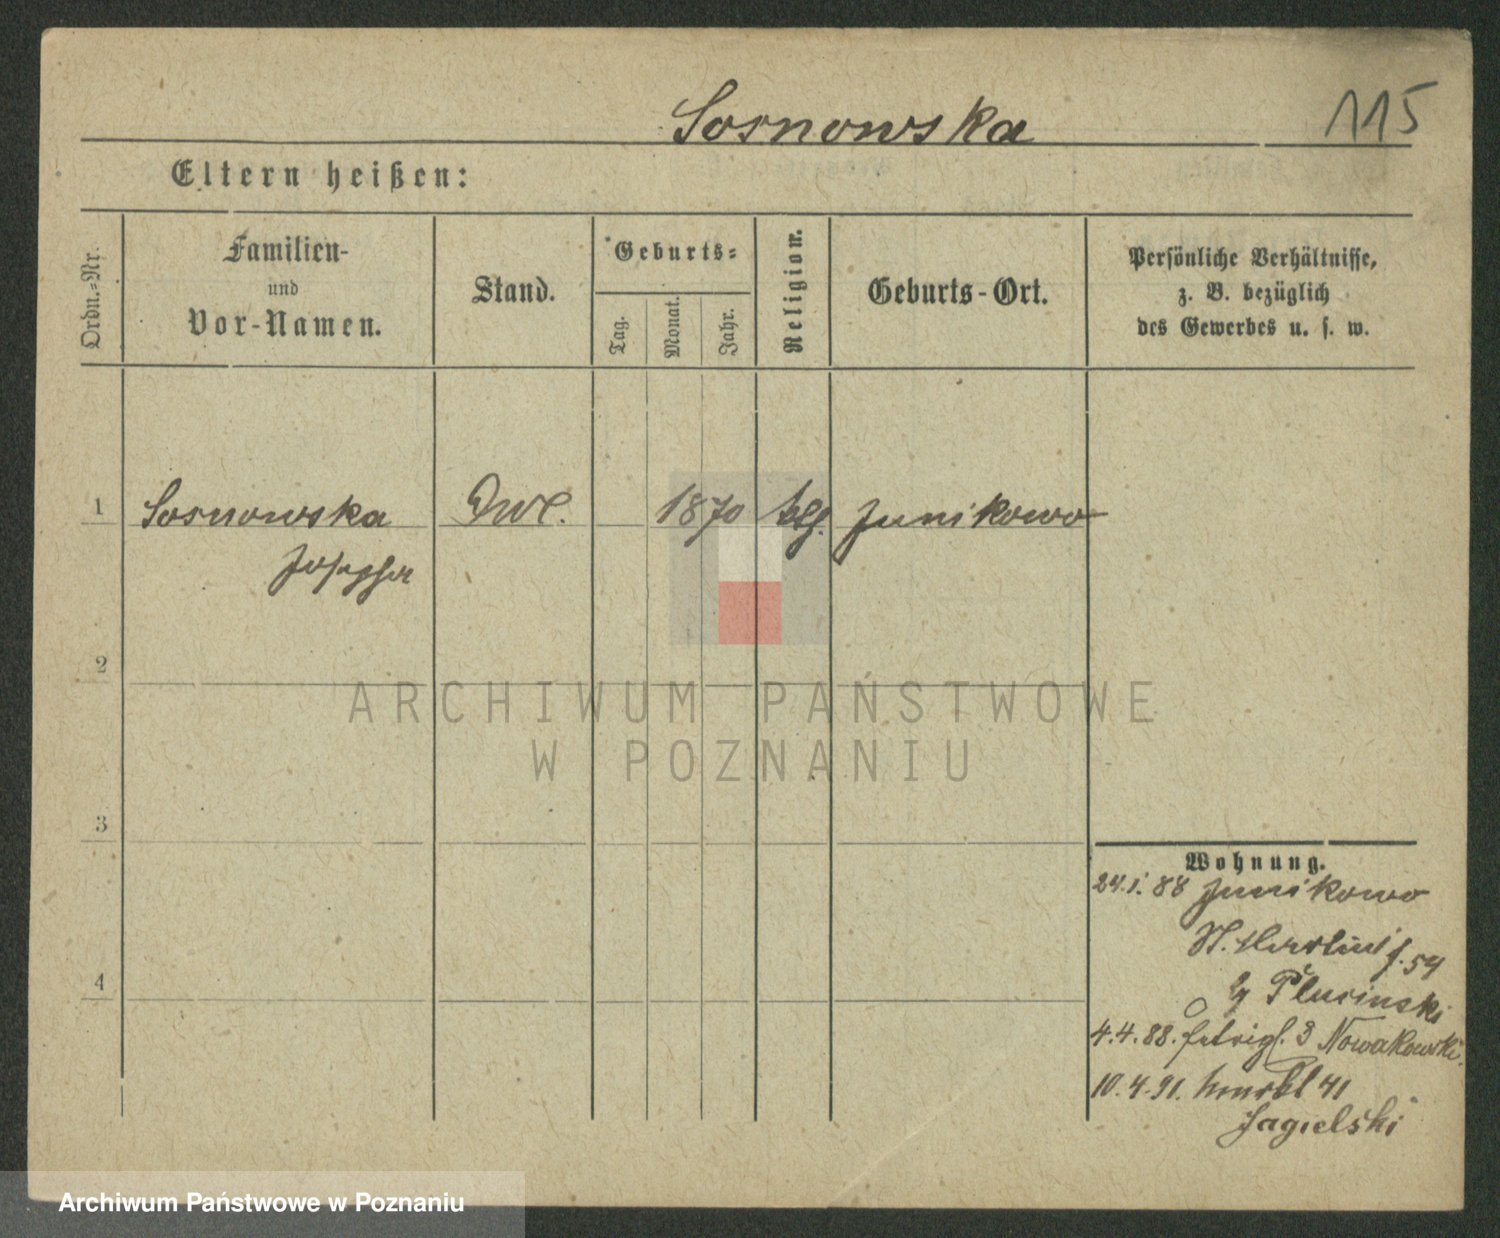 Sosnowska
115
Eltern heißen:
Ordn.-Nr.
Familien-
und
Vor-Namen.
Stand.
Geburts-
Tag.
Monat.
Jahr.
Religion.
Geburts-Ort.
Persönliche Verhältnisse,
z. B. bezüglich
des Gewerbes u. s. w.
1 Sosnowska 1870 Junikowo
Josepha
2
3
4
Wohnung.
24.1.88 Junikowo
St. Martin 54
Plucinski
4.4.88. 3 Nowakowski
10.4.91. 41
Jagielski
ARCHIWUM PAŃSTWOWE
W POZNANIU
Archiwum Państwowe w Poznaniu